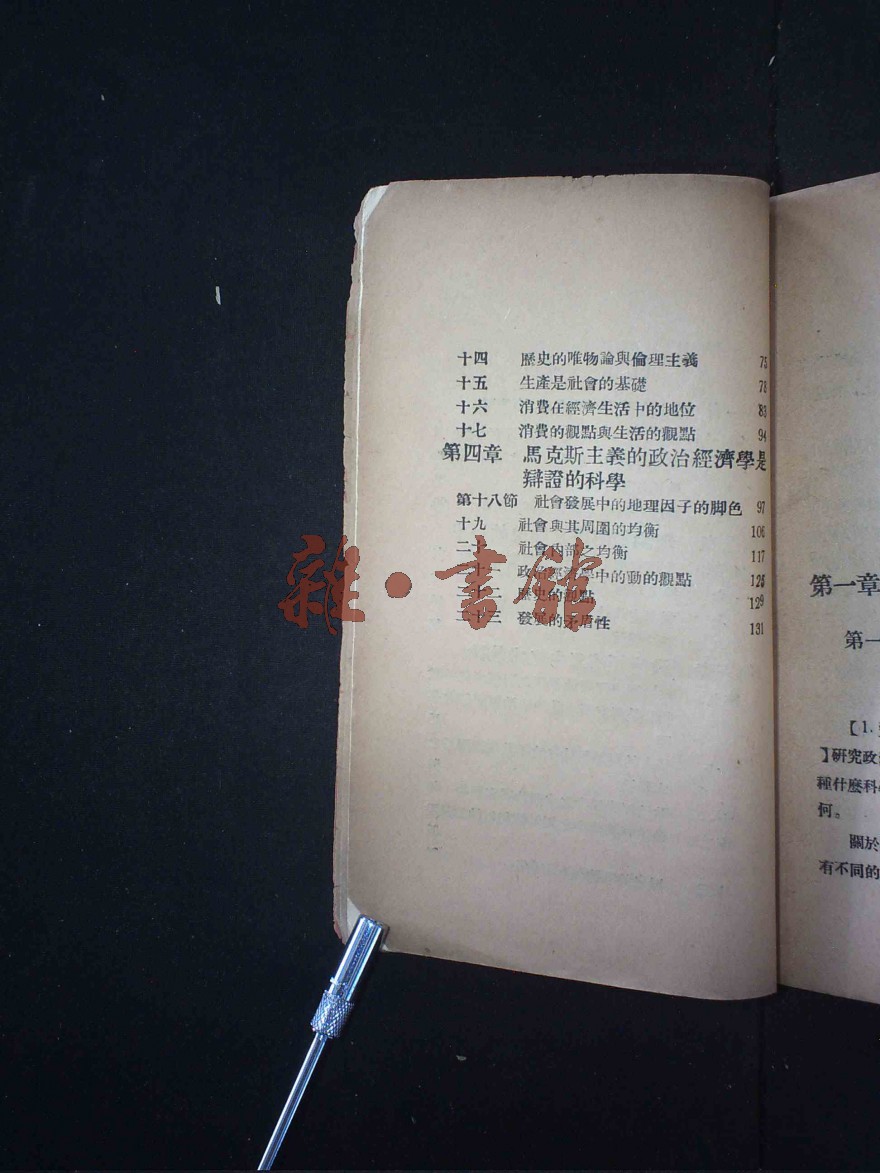 十四 歷史的唯物論與倫理主義 75
十五 生產是社會的基礎 78
十六 消費在經濟生活中的地位 83
十七 消費的觀點與生活的觀點 94
第四章 馬克斯主義的政治經濟學是
辯證的科學
第十八節 社會發展中的地理因子的脚色 97
十九 社會與其周圍的均衡 106
二十 社會內部之均衡 117
二十一 政治經濟學中的動的觀點 125
二十二 歷史的觀點 129
二十三 發展的矛盾性 131
雜·書館
第一章
第一
【1.
】研究政
種什麽科
何。
關於
有不同的